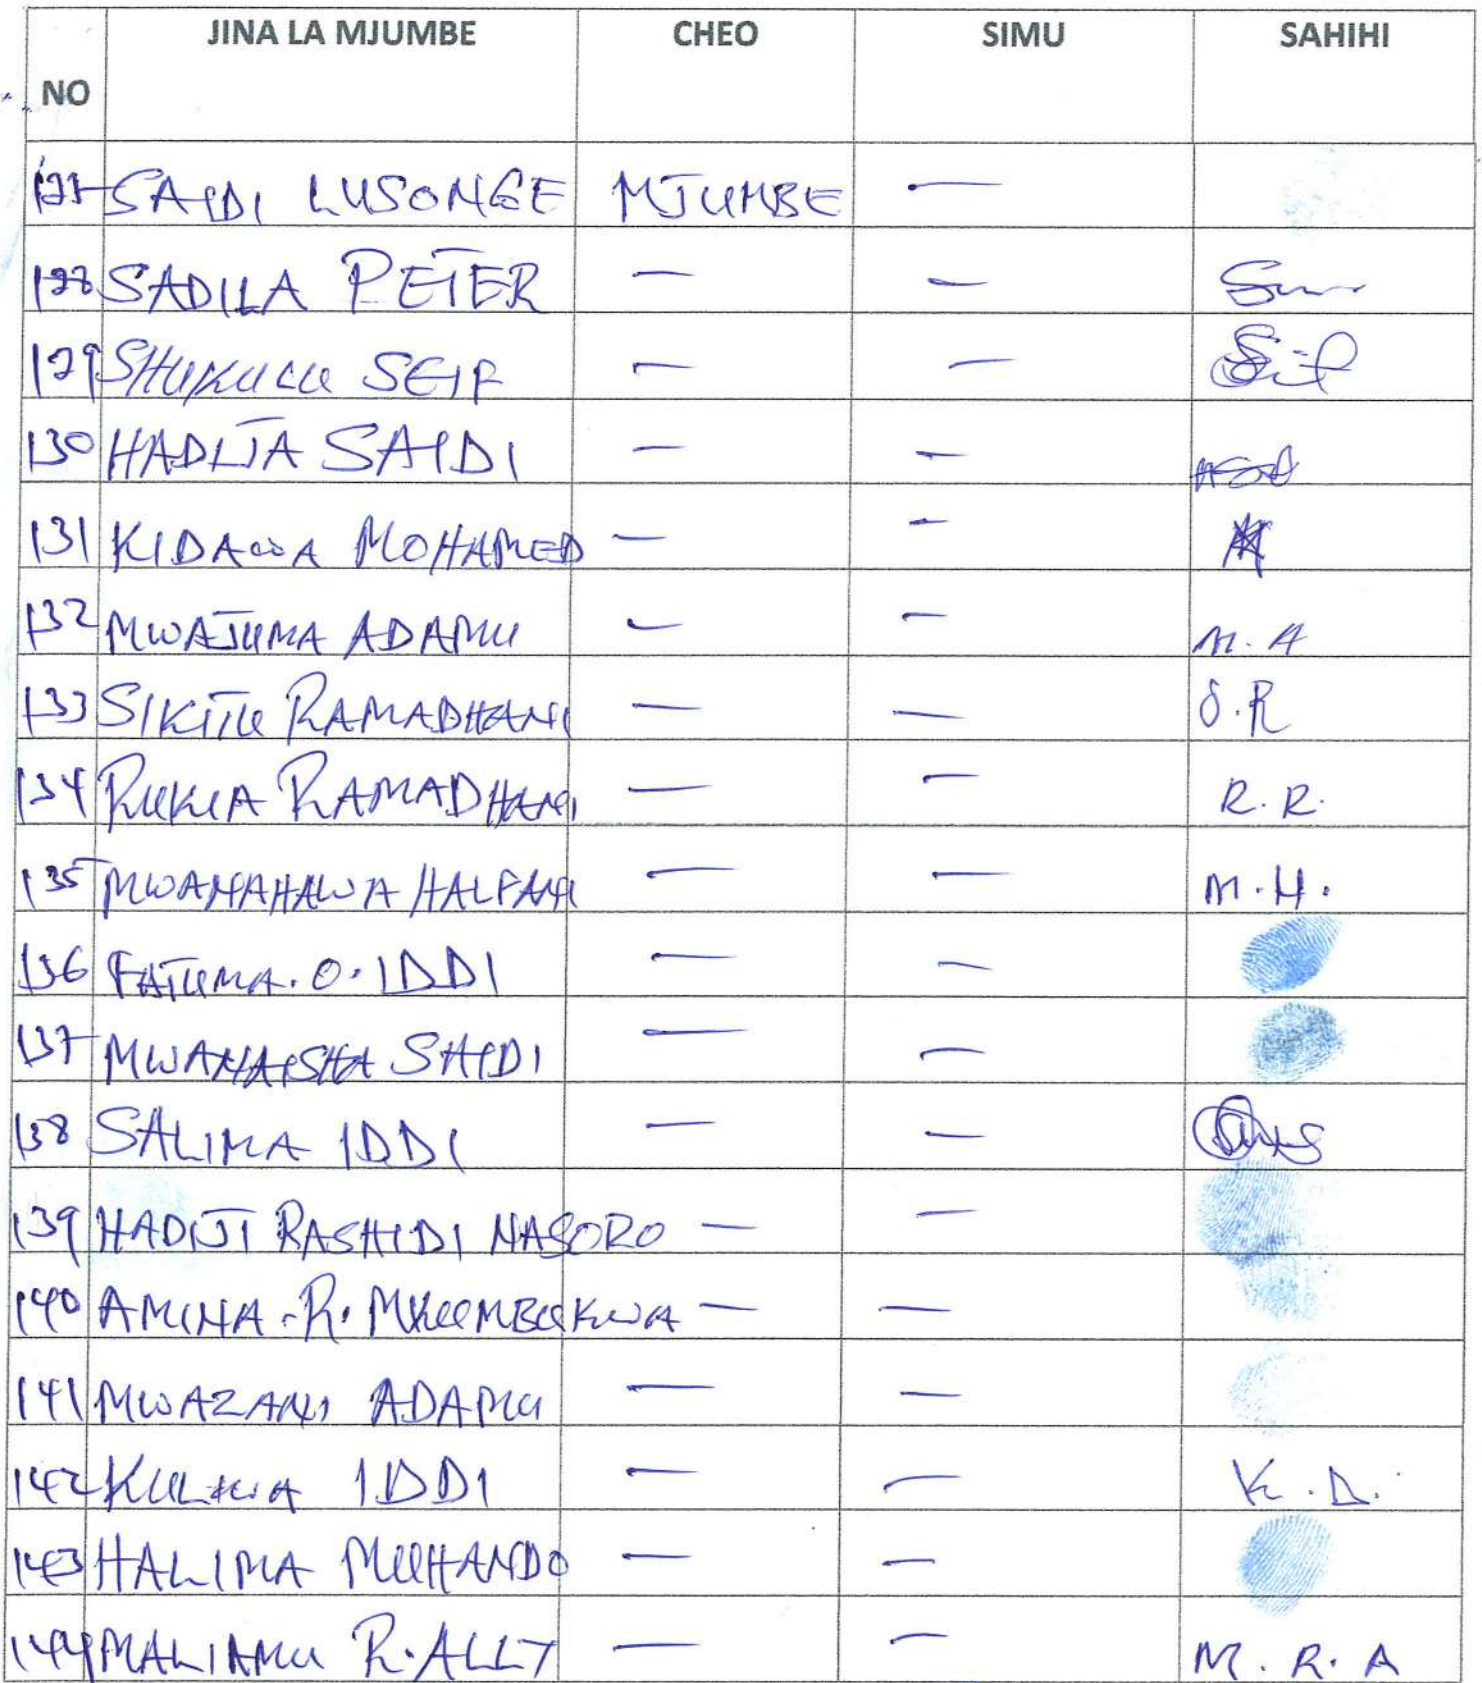 NO JINA LA MJUMBE CHEO SIMU SAHIHI
127 SAIDI LUSONGE MJUMBE —
128 SADILA PETER — —
129 SHUKULU SEIF — —
130 HADIJA SAIDI — —
131 KIDAWA MOHAMED — —
132 MWAJUMA ADAMU — — M.A
133 SIKITU RAMADHANI — — S.R
134 RUKIA RAMADHANI — — R.R.
135 MWANAHAWA HALFANI — — M.H.
136 FATUMA.O.IDDI — —
137 MWANAISHA SAIDI — —
138 SALIMA IDDI — —
139 HADIJI RASHIDI NASORO — —
140 AMINA.R.MKUMBUKWA — —
141 MWAZANI ADAMU — —
142 KULWA IDDI — — K.D.
143 HALIMA MUHANDO — —
144 MALIAMU R.ALLY — — M.R.A